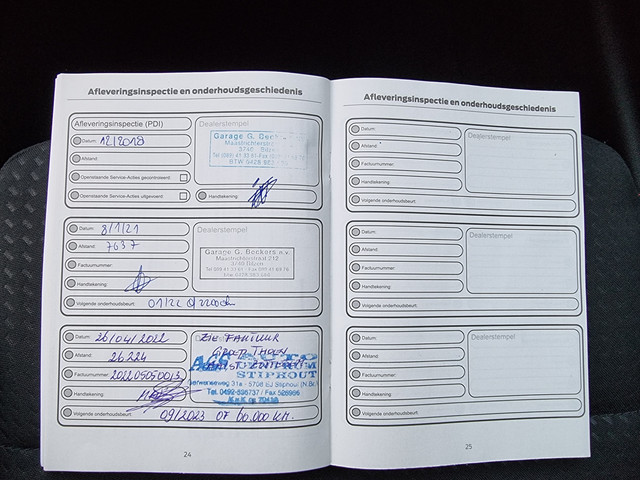 Afleveringsinspectie en onderhoudsgeschiedenis
Afleveringsinspectie (PDI)
Datum: 12/2018
Afstand:
Openstaande Service-Acties gecontroleerd:
Openstaande Service-Acties uitgevoerd:
Dealerstempel
Garage G. Beckers
Maastrichterstr
3740 Bilzen
BTW 0428
Handtekening:
Datum: 8/1/21
Afstand: 7637
Factuurnummer:
Handtekening:
Volgende onderhoudsbeurt: 01/22
Dealerstempel
Garage G. Beckers n.v.
Maastrichterstraat 212
3740 Bilzen
Datum: 26/04/2022
Afstand: 26224
Factuurnummer: 202205050013
Handtekening:
Volgende onderhoudsbeurt: 09/2023 OF 60.000 KM.
ZIE FAKTUUR
AUTO
CENTRUM
STIPHOUT
31a - 5708 EJ Stiphout (N.Br.)
Tel. 0492-535737 / Fax 526986
24
Afleveringsinspectie en onderhoudsgeschiedenis
Datum:
Afstand:
Factuurnummer:
Handtekening:
Volgende onderhoudsbeurt:
Dealerstempel
Datum:
Afstand:
Factuurnummer:
Handtekening:
Volgende onderhoudsbeurt:
Dealerstempel
Datum:
Afstand:
Factuurnummer:
Handtekening:
Volgende onderhoudsbeurt:
Dealerstempel
25